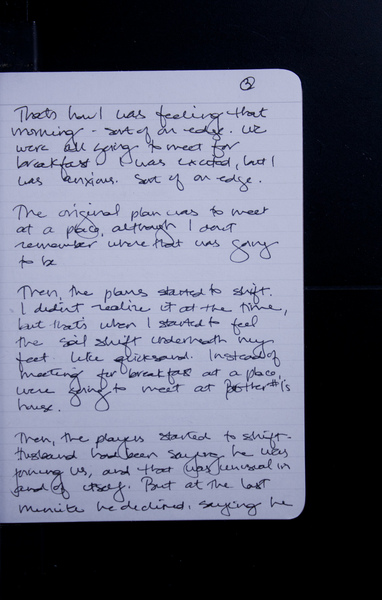 3
That's how I was feeling that
morning - sort of on edge. We
were all going to meet for
breakfast. I was excited, but I
was anxious. Sort of on edge.
The original plan was to meet
at a place, although I don't
remember where that was going
to be
Then, the plans started to shift.
I didn't realize it at the time,
but that's when I started to feel
the soil shift underneath my
feet. Like quicksand. Instead of
meeting for breakfast at a place,
were going to meet at Brother #1's
house.
Then, the players started to shift.
Husband had been saying he was
joining us, and that was unusual in
and of itself. But at the last
minute he declined, saying he